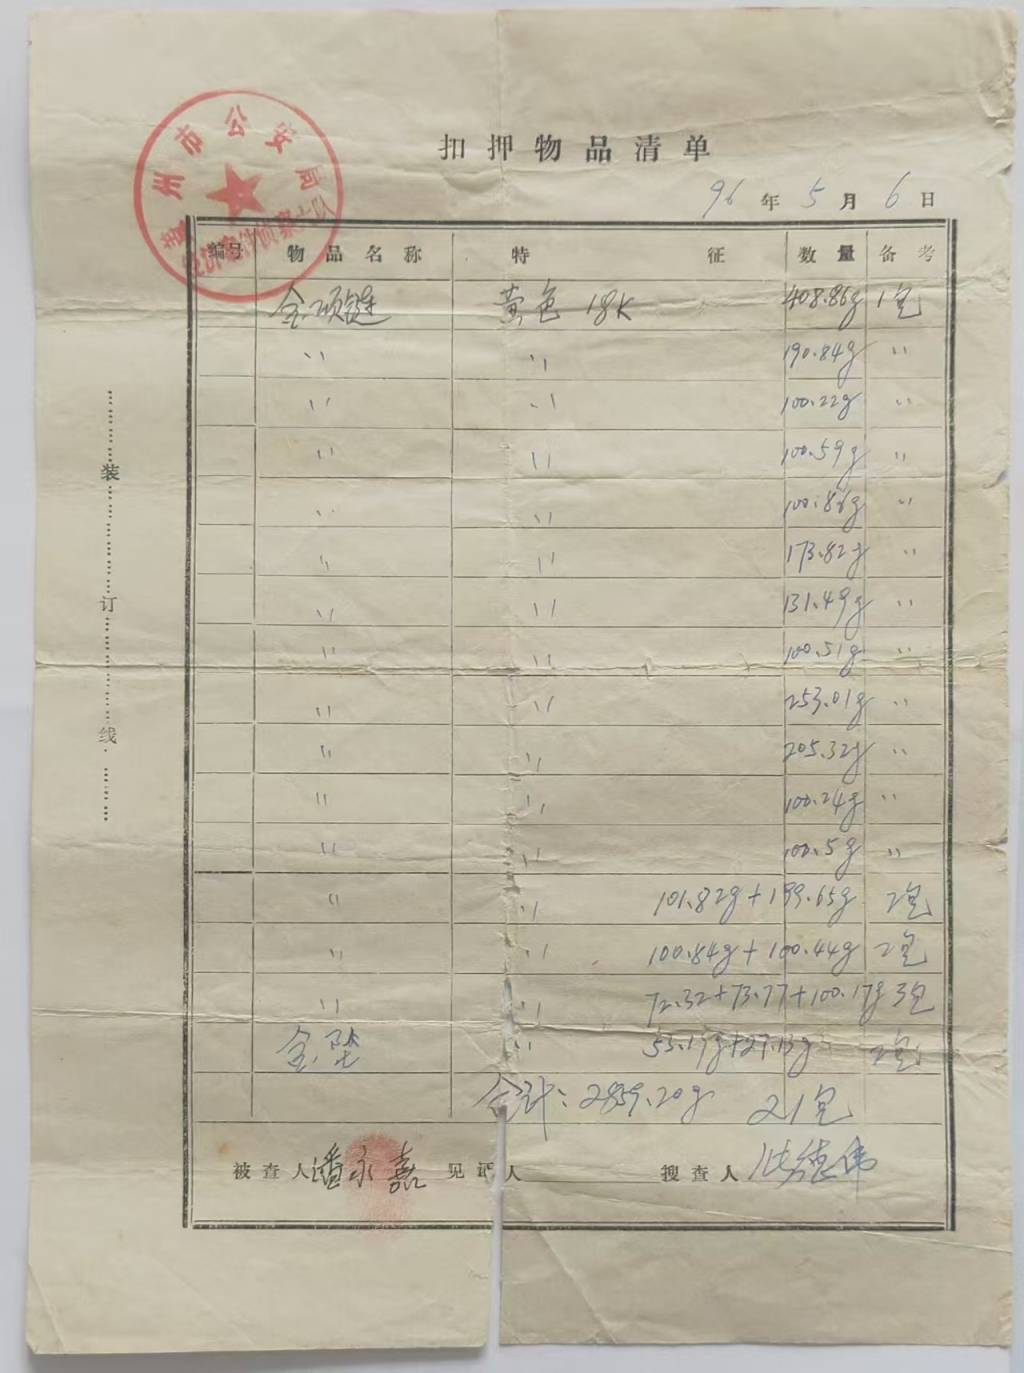 扣押物品清单
96年5月6日
州市公安局
编号 物品名称 特征 数量 备考
金项链 黄色 18K 408.86g 1包
〃 〃 190.84g 〃
〃 〃 100.22g 〃
〃 〃 100.59g 〃
〃 〃 100.86g 〃
〃 〃 173.82g 〃
〃 〃 131.49g 〃
〃 〃 100.51g 〃
〃 〃 253.01g 〃
〃 〃 205.32g 〃
〃 〃 100.24g 〃
〃 〃 100.5g 〃
〃 〃 101.82g+199.65g 2包
〃 〃 100.84g+100.44g 2包
〃 〃 72.32+73.77+100.17g 3包
金坠 〃 55.17g+27.13g 2包
合计:2859.20g 21包
被查人 潘永嘉 见证人 搜查人
装订线